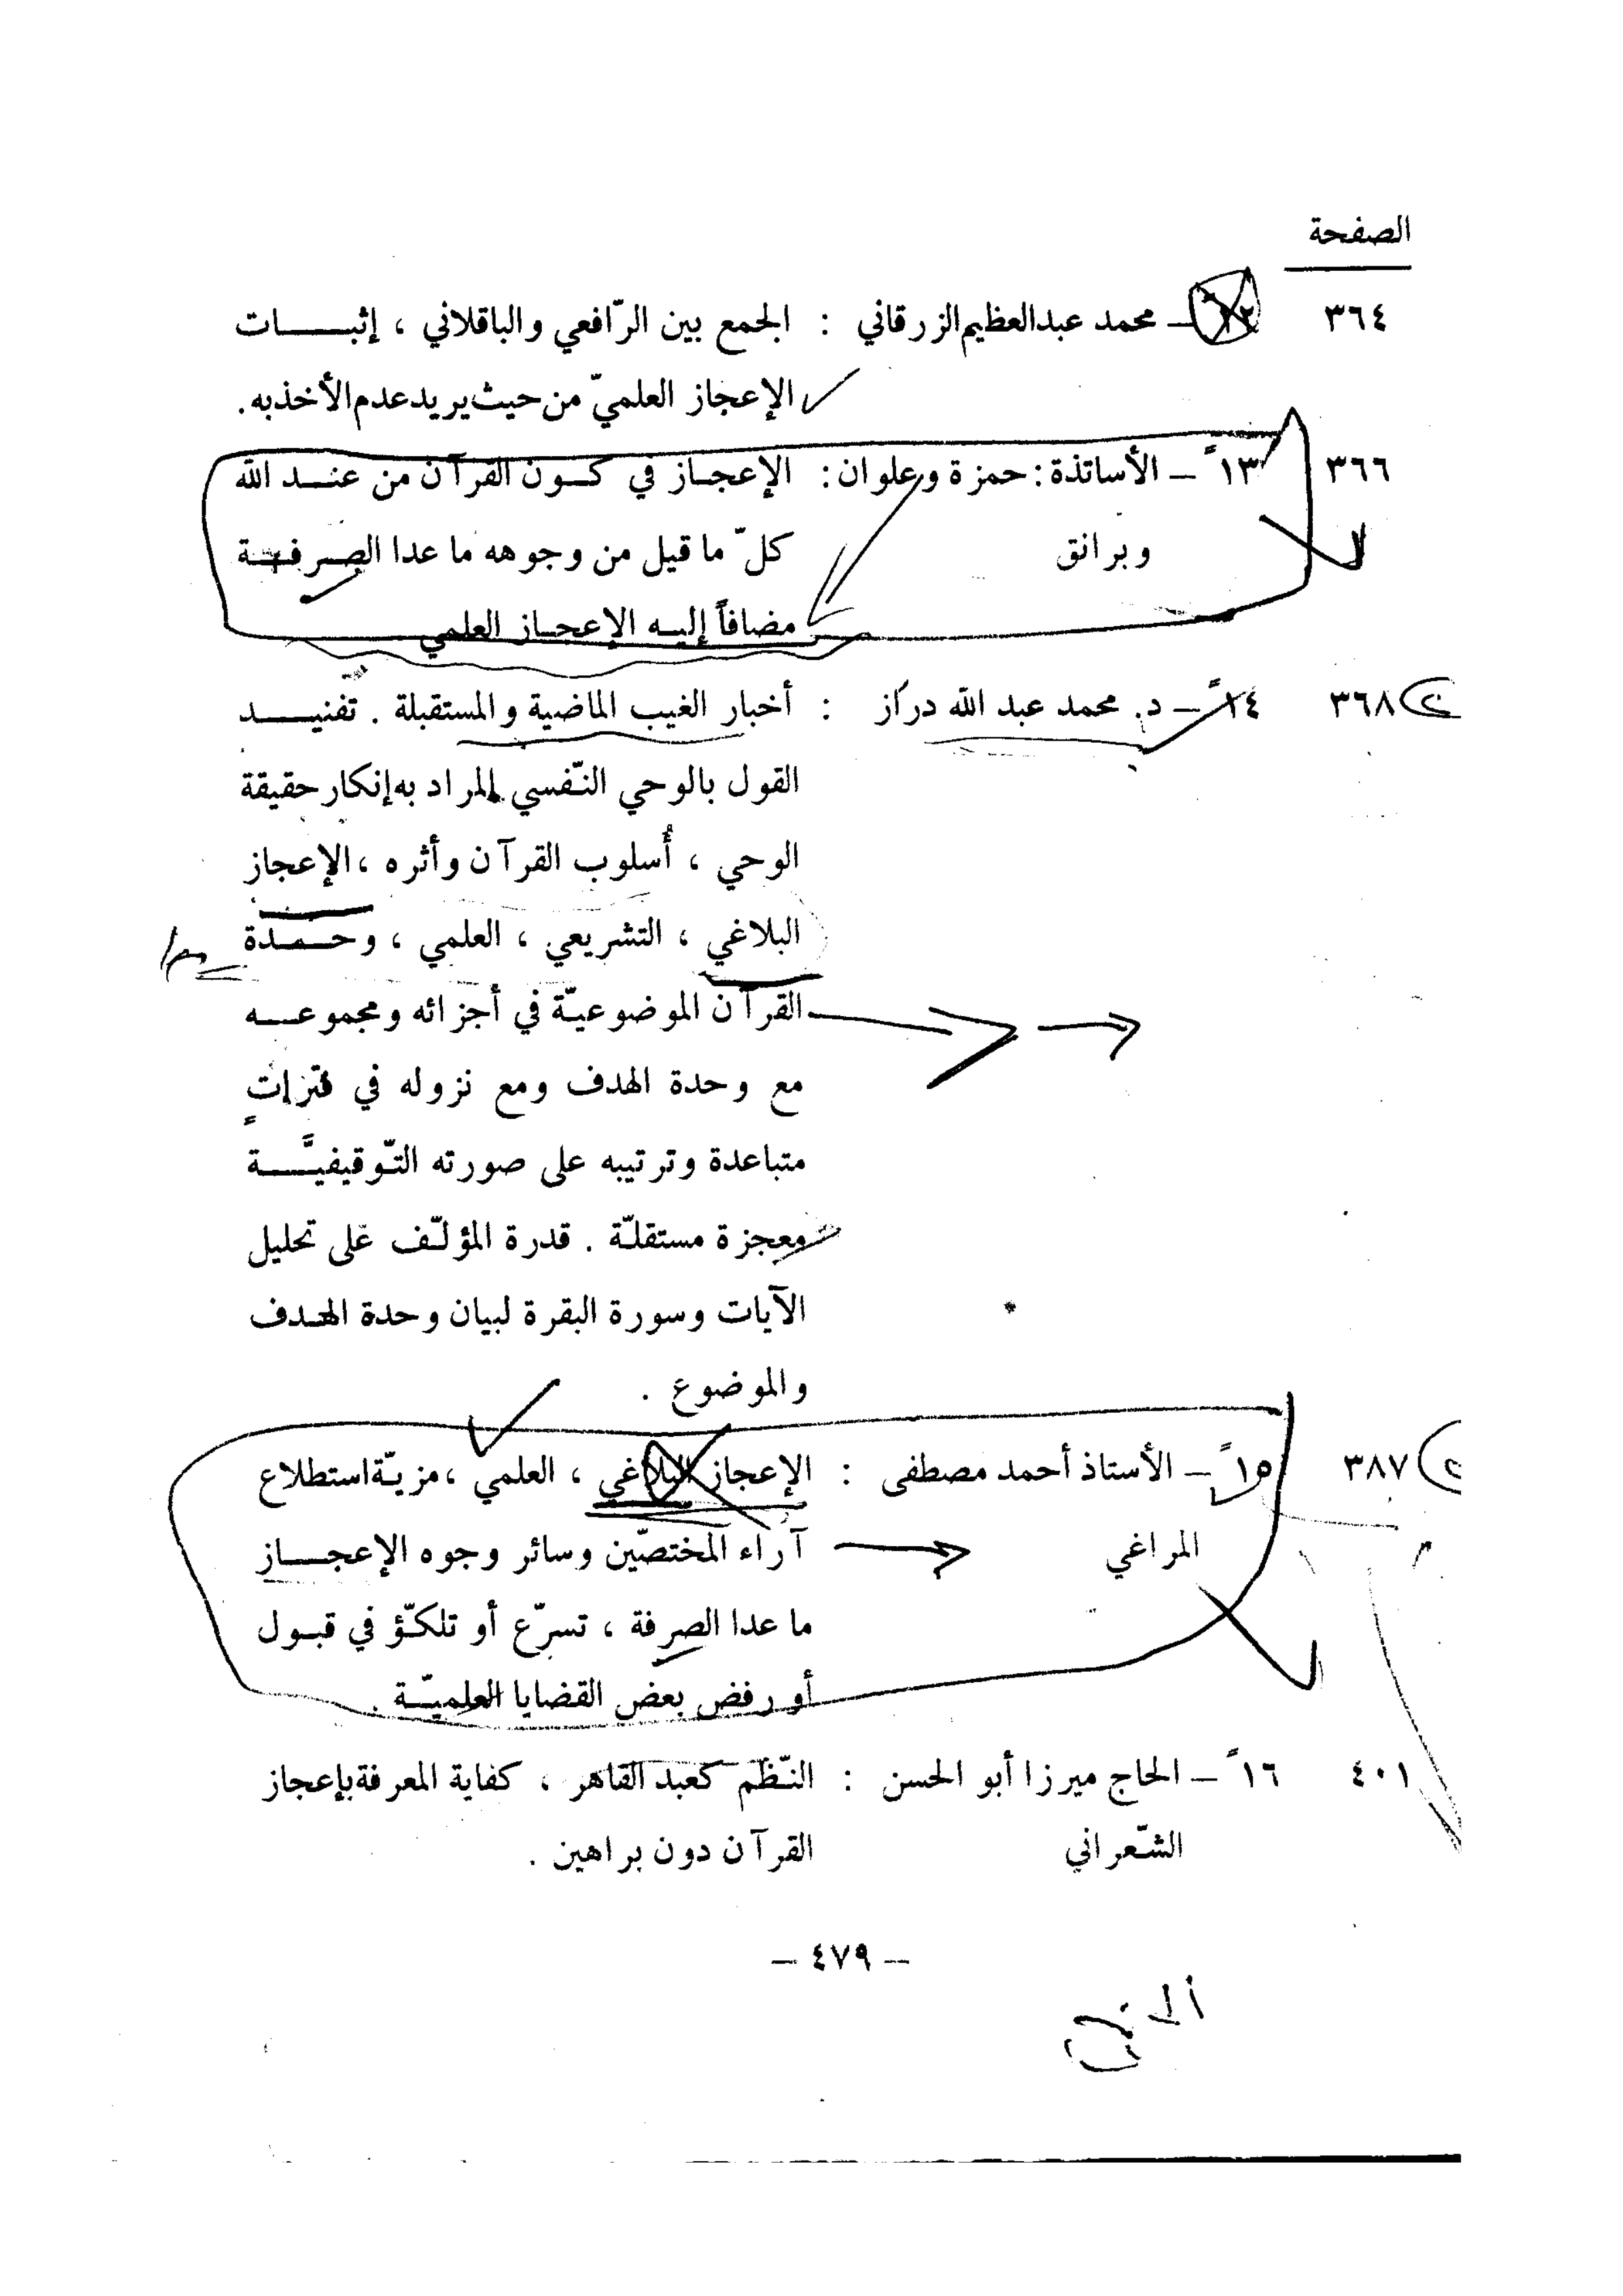 الصفحة
٣٦٤ ١٢ً – محمد عبدالعظيم الزرقاني : الجمع بين الرّافعي والباقلاني ، إثبـــات
الإعجاز العلميّ من حيث يريد عدم الأخذ به .
٣٦٦ ١٣ً – الأساتذة : حمزة وعلوان : الإعجـاز في كـون القرآن من عنـد الله
وبرانق كلّ ما قيل من وجوهه ما عدا الصـرفـة
مضافاً إليـه الإعجـاز العلمي
٣٦٨ ١٤ً – د. محمد عبد الله دراز : أخبار الغيب الماضية والمستقبلة . تفنيــد
القول بالوحي النّفسي المراد به إنكار حقيقة
الوحي ، أُسلوب القرآن وأثره ، الإعجاز
البلاغي ، التشريعي ، العلمي ، وحـدة
القرآن الموضوعيّة في أجزائه ومجموعــه
مع وحدة الهدف ومع نزوله في فترات
متباعدة وترتيبه على صورته التّوقيفيَّــة
معجزة مستقلّة . قدرة المؤلّف على تحليل
الآيات وسورة البقرة لبيان وحدة الهدف
والموضوع .
٣٨٧ ١٥ً – الأستاذ أحمد مصطفى : الإعجاز البلاغي ، العلمي ، مزيّة استطلاع
المراغي آراء المختصّين وسائر وجوه الإعجــاز
ما عدا الصرفة ، تسرّع أو تلكّؤ في قبـول
أو رفض بعض القضايا العلميّـة .
٤٠١ ١٦ً – الحاج ميرزا أبو الحسن : النّظم كعبد القاهر ، كفاية المعرفة بإعجاز
الشّعراني القرآن دون براهين .
– ٤٧٩ –